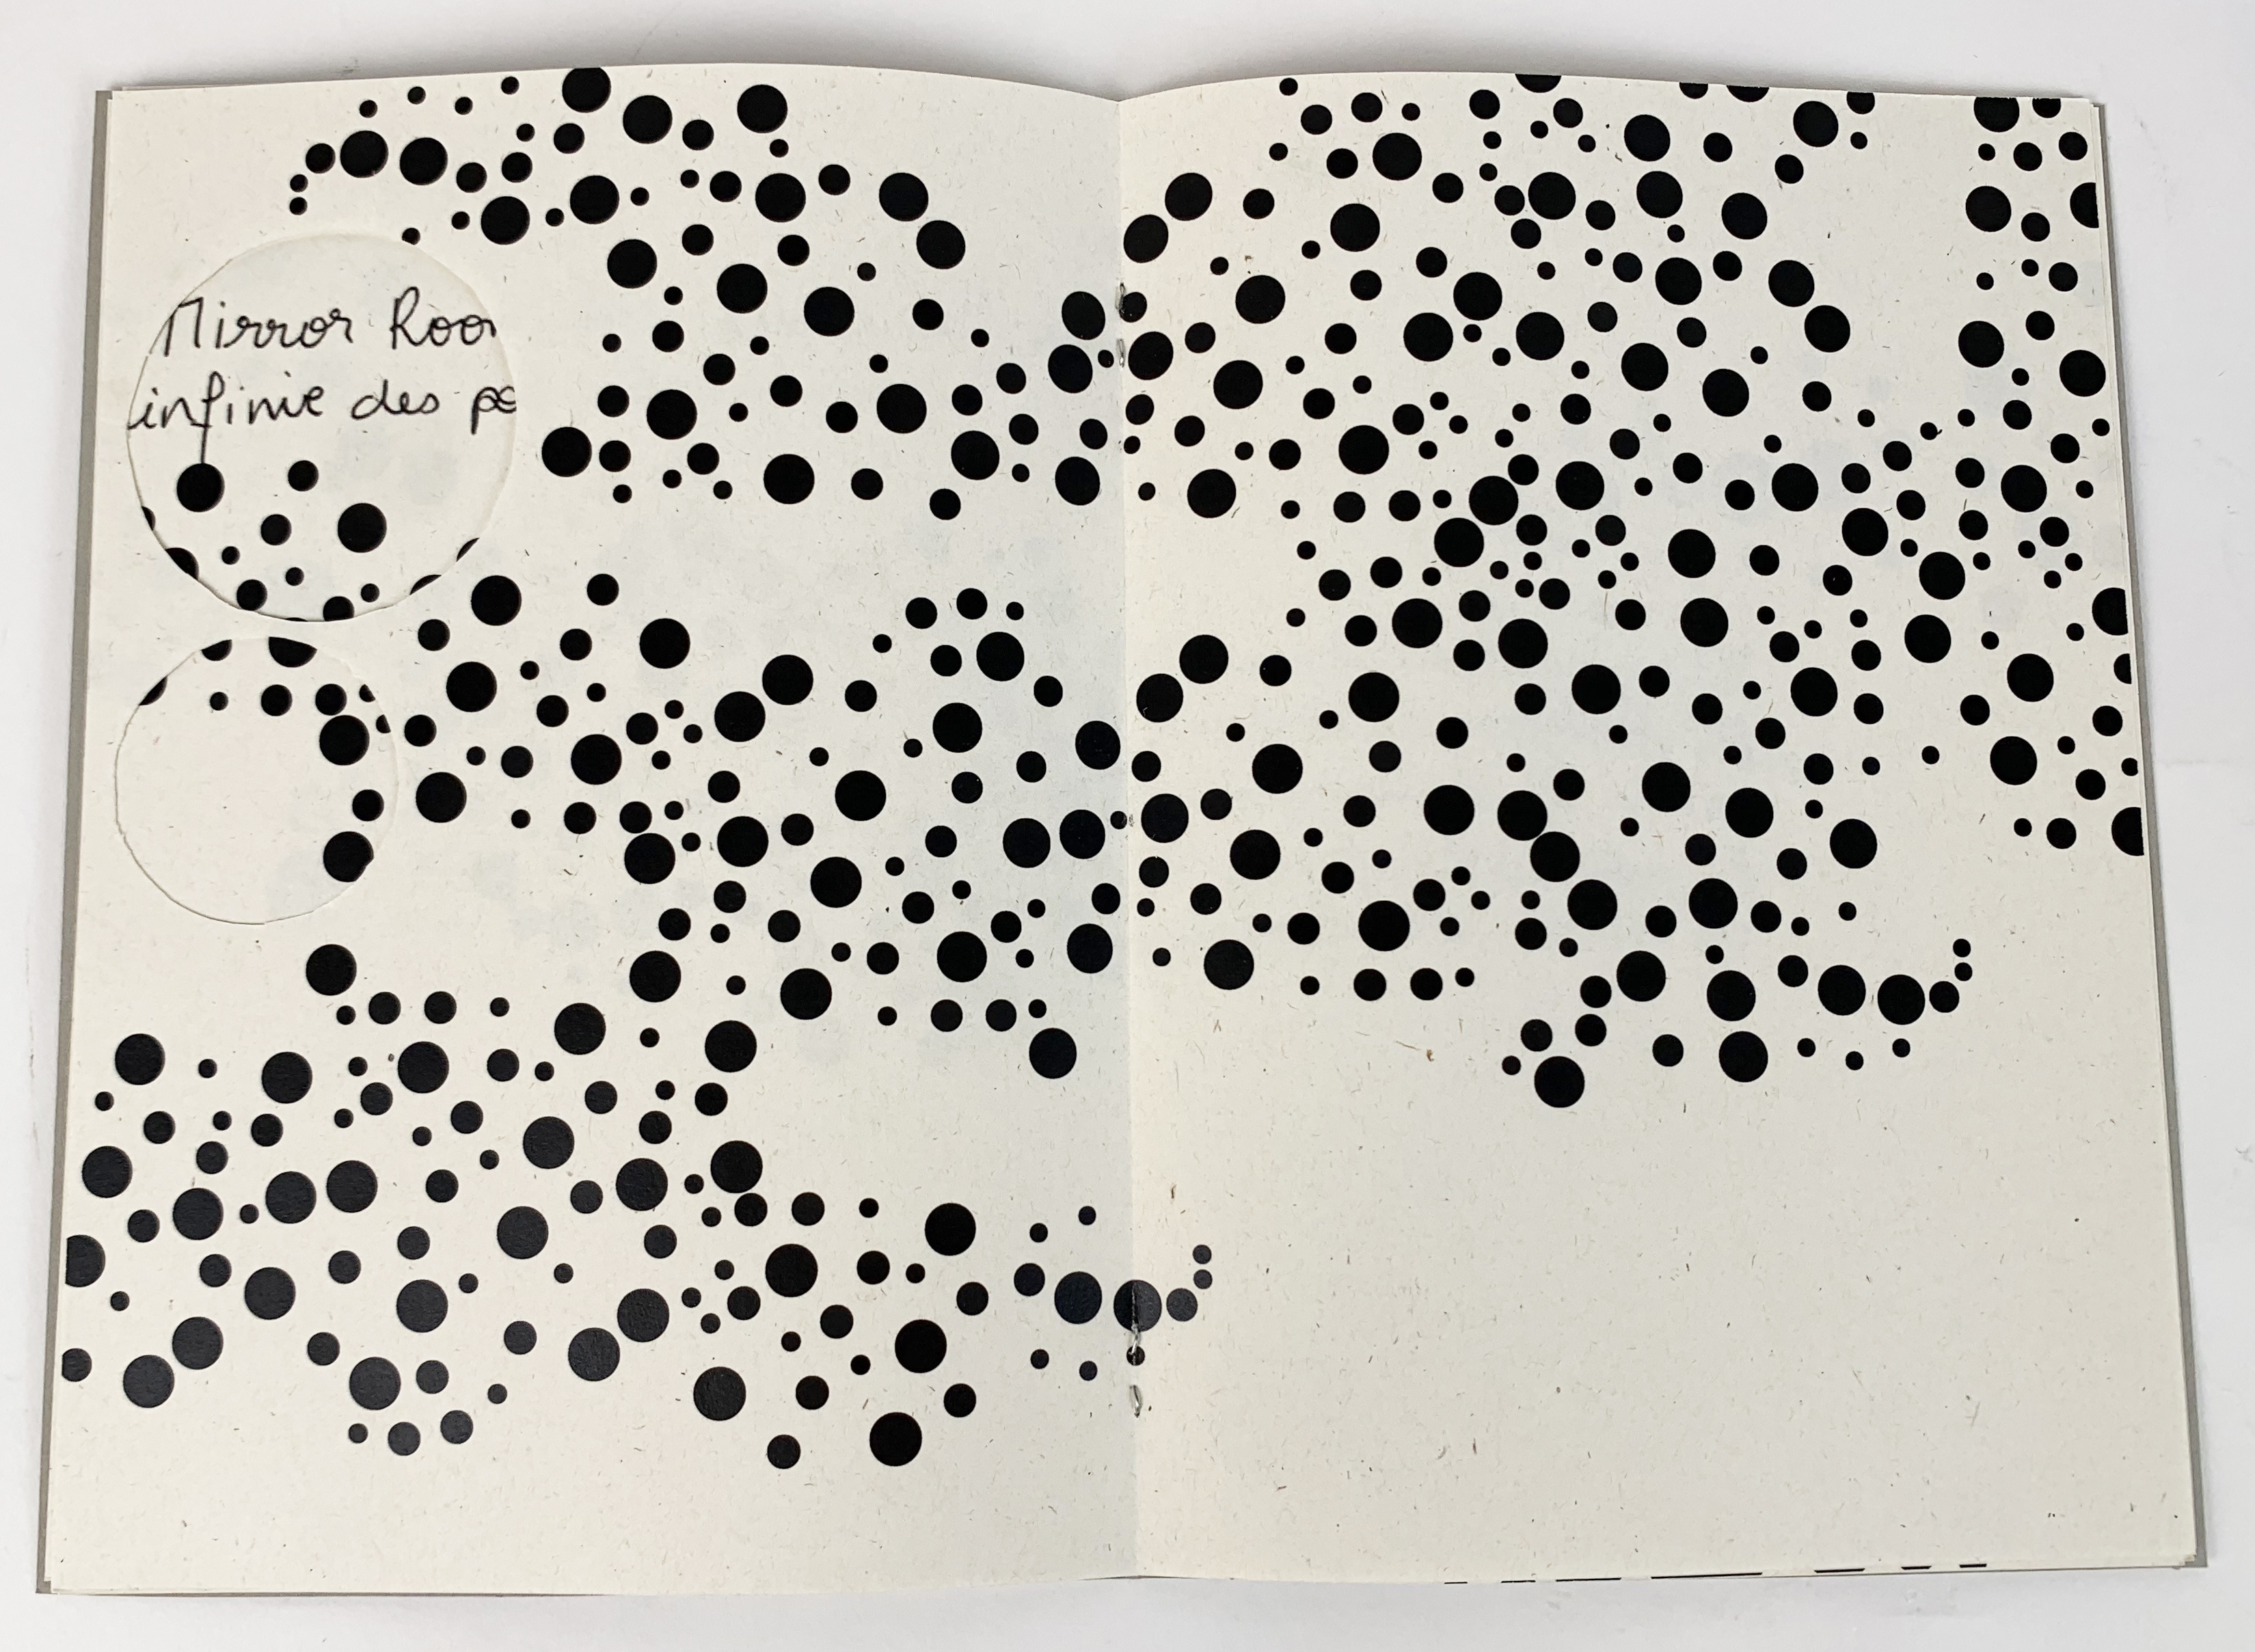 Mirror Roo
infinie des p